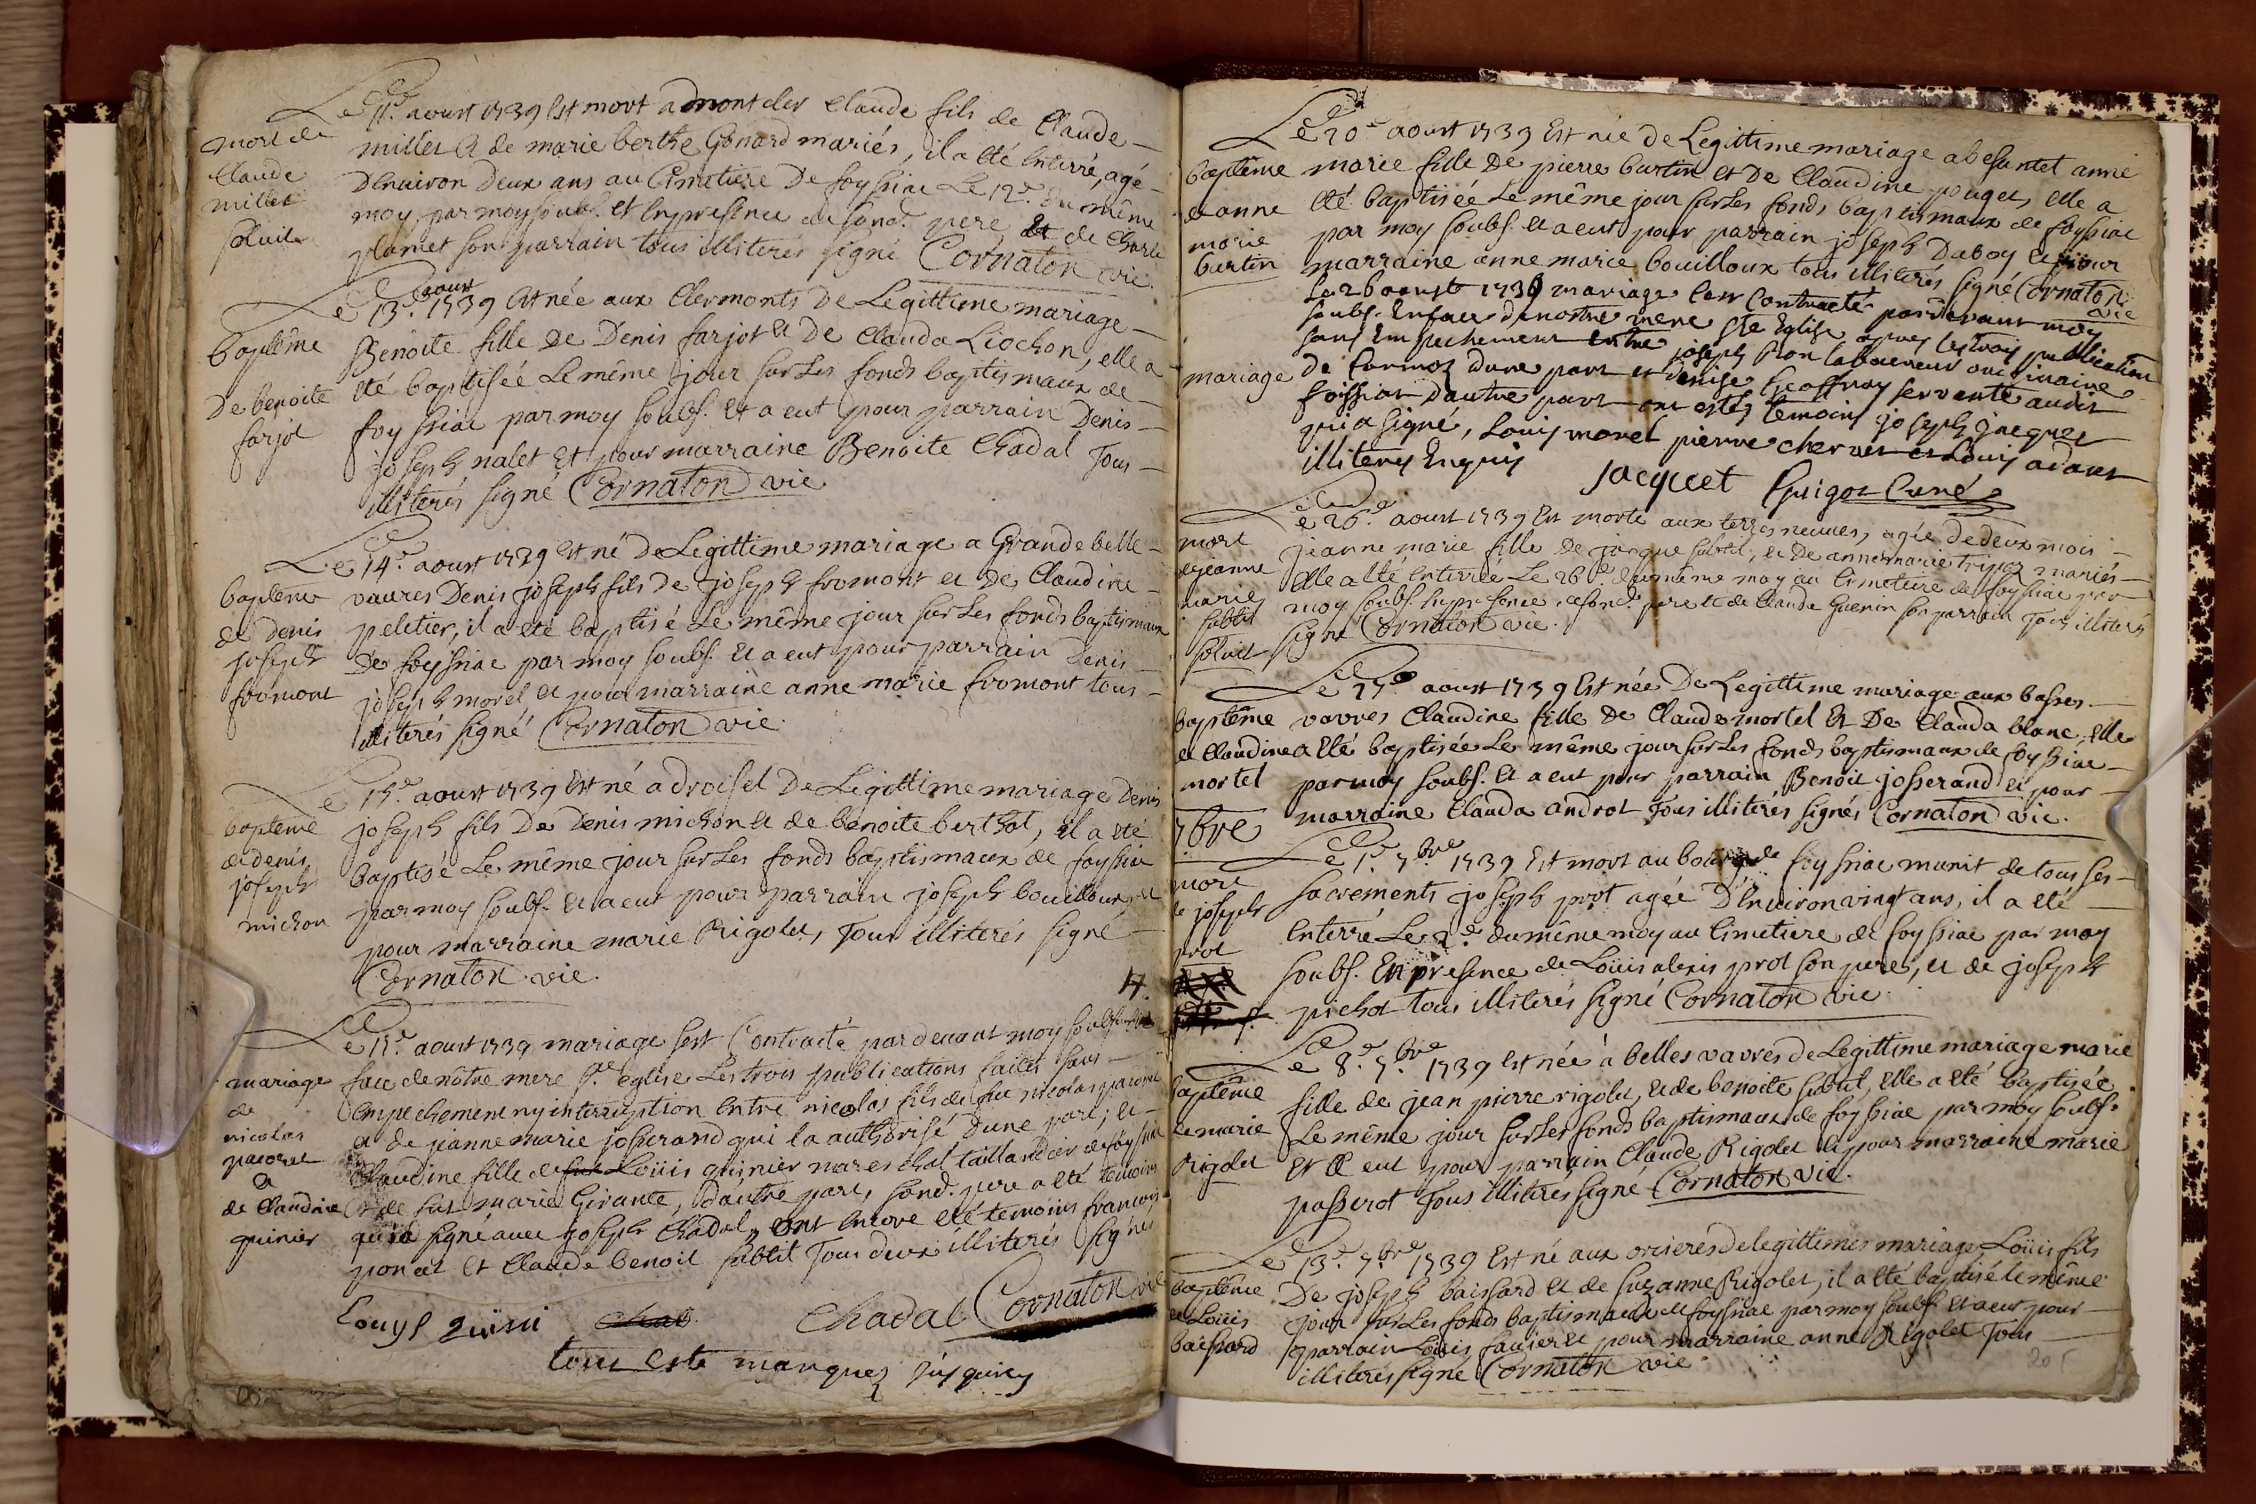 Le 11.e aoust 1739 Est mort a montcler Claude fils de Claude
mort de
Claude
millet
millet Et de marie berthe Gonard mariés, il a Eté Enterré, agé
D'Enuiron Deux ans au Cimetiere De foyssiac Le 12.e du même
moy par moy soubs. et En presence de sond. pere, et de Charle
plamet son parrain tous illiterés signé Cornaton vic.
Le 13.e aoust 1739 Est née aux Clermonts De Legittime mariage
baptême
De benoite
farjot
Benoite fille De Denis farjot Et De Clauda Liochon, elle a
Eté baptisée Le même jour sur Les fonds baptismaux de
foyssiac par moy soubs. Et a eut pour parrain Denis
joseph nalet Et pour marraine Benoite Chadal Tous
illiterés signé Cornaton vic
Le 14.e aoust 1739 Est né De Legittime mariage a Grande belle
bapteme
de denis
joseph
fromont
vavres Denis joseph fils de joseph fromont et De Claudine
peletier, il a eté baptisé Le même jour sur Les fonds baptismaux
De foyssiac par moy soubs. Et a eut pour parrain Denis
joseph morel et pour marraine anne marie fromont tous
illiterés signé Cornaton vic.
Le 15.e aoust 1739 Est né a droisel De Legittime mariage Denis
bapteme
de denis
joseph
michon
joseph fils De Denis michon et de benoite berthot, il a eté
baptisé Le même jour sur Les fonds baptismaux de foyssiac
par moy soubs. Et a eut pour parrain joseph bouilloux, et
pour marraine marie Rigolet, Tous illiterés signé
Cornaton vic.
Le 15.e aoust 1739 mariage s'est Contracté pardevant moy soubs.
mariage
de
nicolas
pacoret
Et
de Claudine
quinier
face de nôtre mere S.te eglise Les trois publications faites sans
empechement ny interruption entre nicolas fils de feu nicolas pacoret
et de jeanne marie josserand qui l'a authorisé d'une part, et
Claudine fille de Loüis quinier mareschal taillandier de foyssiac
et de marie Girance, d'autre part, sond. pere a eté temoins
qui a signé avec joseph Chadal, ont encore eté temoins francois
ponat Et Claude benoit subtil Tous deux illiterés signés
Chadal Cornaton vic
tous este marques jusquicy
Le 20.e aoust 1739 Est née de Legittime mariage a besantet anne
baptême
de anne
marie
burtin
marie fille De pierre burtin et De Claudine pouget, elle a
eté baptisée Le même jour sur Les fonds baptismaux de foyssiac
par moy soubs. et a eut pour parrain joseph Daboy et pour
marraine anne marie bouilloux tous illiterés signé Cornaton
vic
Le 26 aoust 1739 mariage s'est Contracté pardevant moy
soubs. En face de nostre mere Ste Eglise apres les trois publication
sans Empechement entre joseph
mariage
de Cormoz d'une part et denise Geoffray servante audit
foissiat d'autre part ont estés temoins joseph jacquet
qui a signé, Louis morel pierre chervet et Louis adam
illiterés Enquis
jacquet Guigot Curé
Le 26.e aoust 1739 Est morte aux terres neuves, agée De deux mois
mort
de jeanne
marie
subtil
jeanne marie fille De jacque subtil, et De anne marie tripoz mariés
Elle a Eté Enterrée Le 26.e du même moy au Cimetiere de foyssiac par
moy soubs. En presence de sond. pere et de Claude Guenin son parrain Tous illiterés
signé Cornaton vic.
Le 27.e aoust 1739 Est née De Legittime mariage aux basses
baptême
de Claudine
mortel
vavres Claudine fille De Claude mortel Et De Clauda blanc, Elle
a Eté baptisée Le même jour sur Les fonds baptismaux de foyssiac
par moy soubs. Et a eut pour parrain Benoit josserand et pour
marraine Clauda androt Tous illiterés signés Cornaton vic.
7bre
Le 1.er 7.bre 1739 Est mort au bourg de foyssiac munit de tous ses
mort
de joseph
prot
sacrements joseph prot agée D'Enuiron vingt ans, il a eté
Enterré Le 2.e du même moy au Cimetiere de foyssiac par moy
soubs. En presence de Loüis alexis prot son pere, et de joseph
pichot tous illiterés signé Cornaton vic.
Le 8.e 7.bre 1739 Est née a belles vavres de Legittime mariage marie
baptême
de marie
Rigolet
fille de jean pierre rigolet, et de benoite subtil, Elle a Eté baptisée
Le même jour sur Les fonds baptismaux de foyssiac par moy soubs.
et a eut pour parrain Claude Rigolet et pour marraine marie
passerot Tous illiterés signé Cornaton vic.
Le 13.e 7.bre 1739 Est né aux orieres de legittimes mariage, Loüis fils
baptême
de Loüis
baissard
De joseph baissard et de suzanne Rigolet, il a Eté baptisé le même
jour sur Les fonds baptismaux de foyssiac par moy soubs. Et a eut pour
parrain Loüis favier et pour marraine anne Rigolet Tous
illiterés signé Cornaton vic